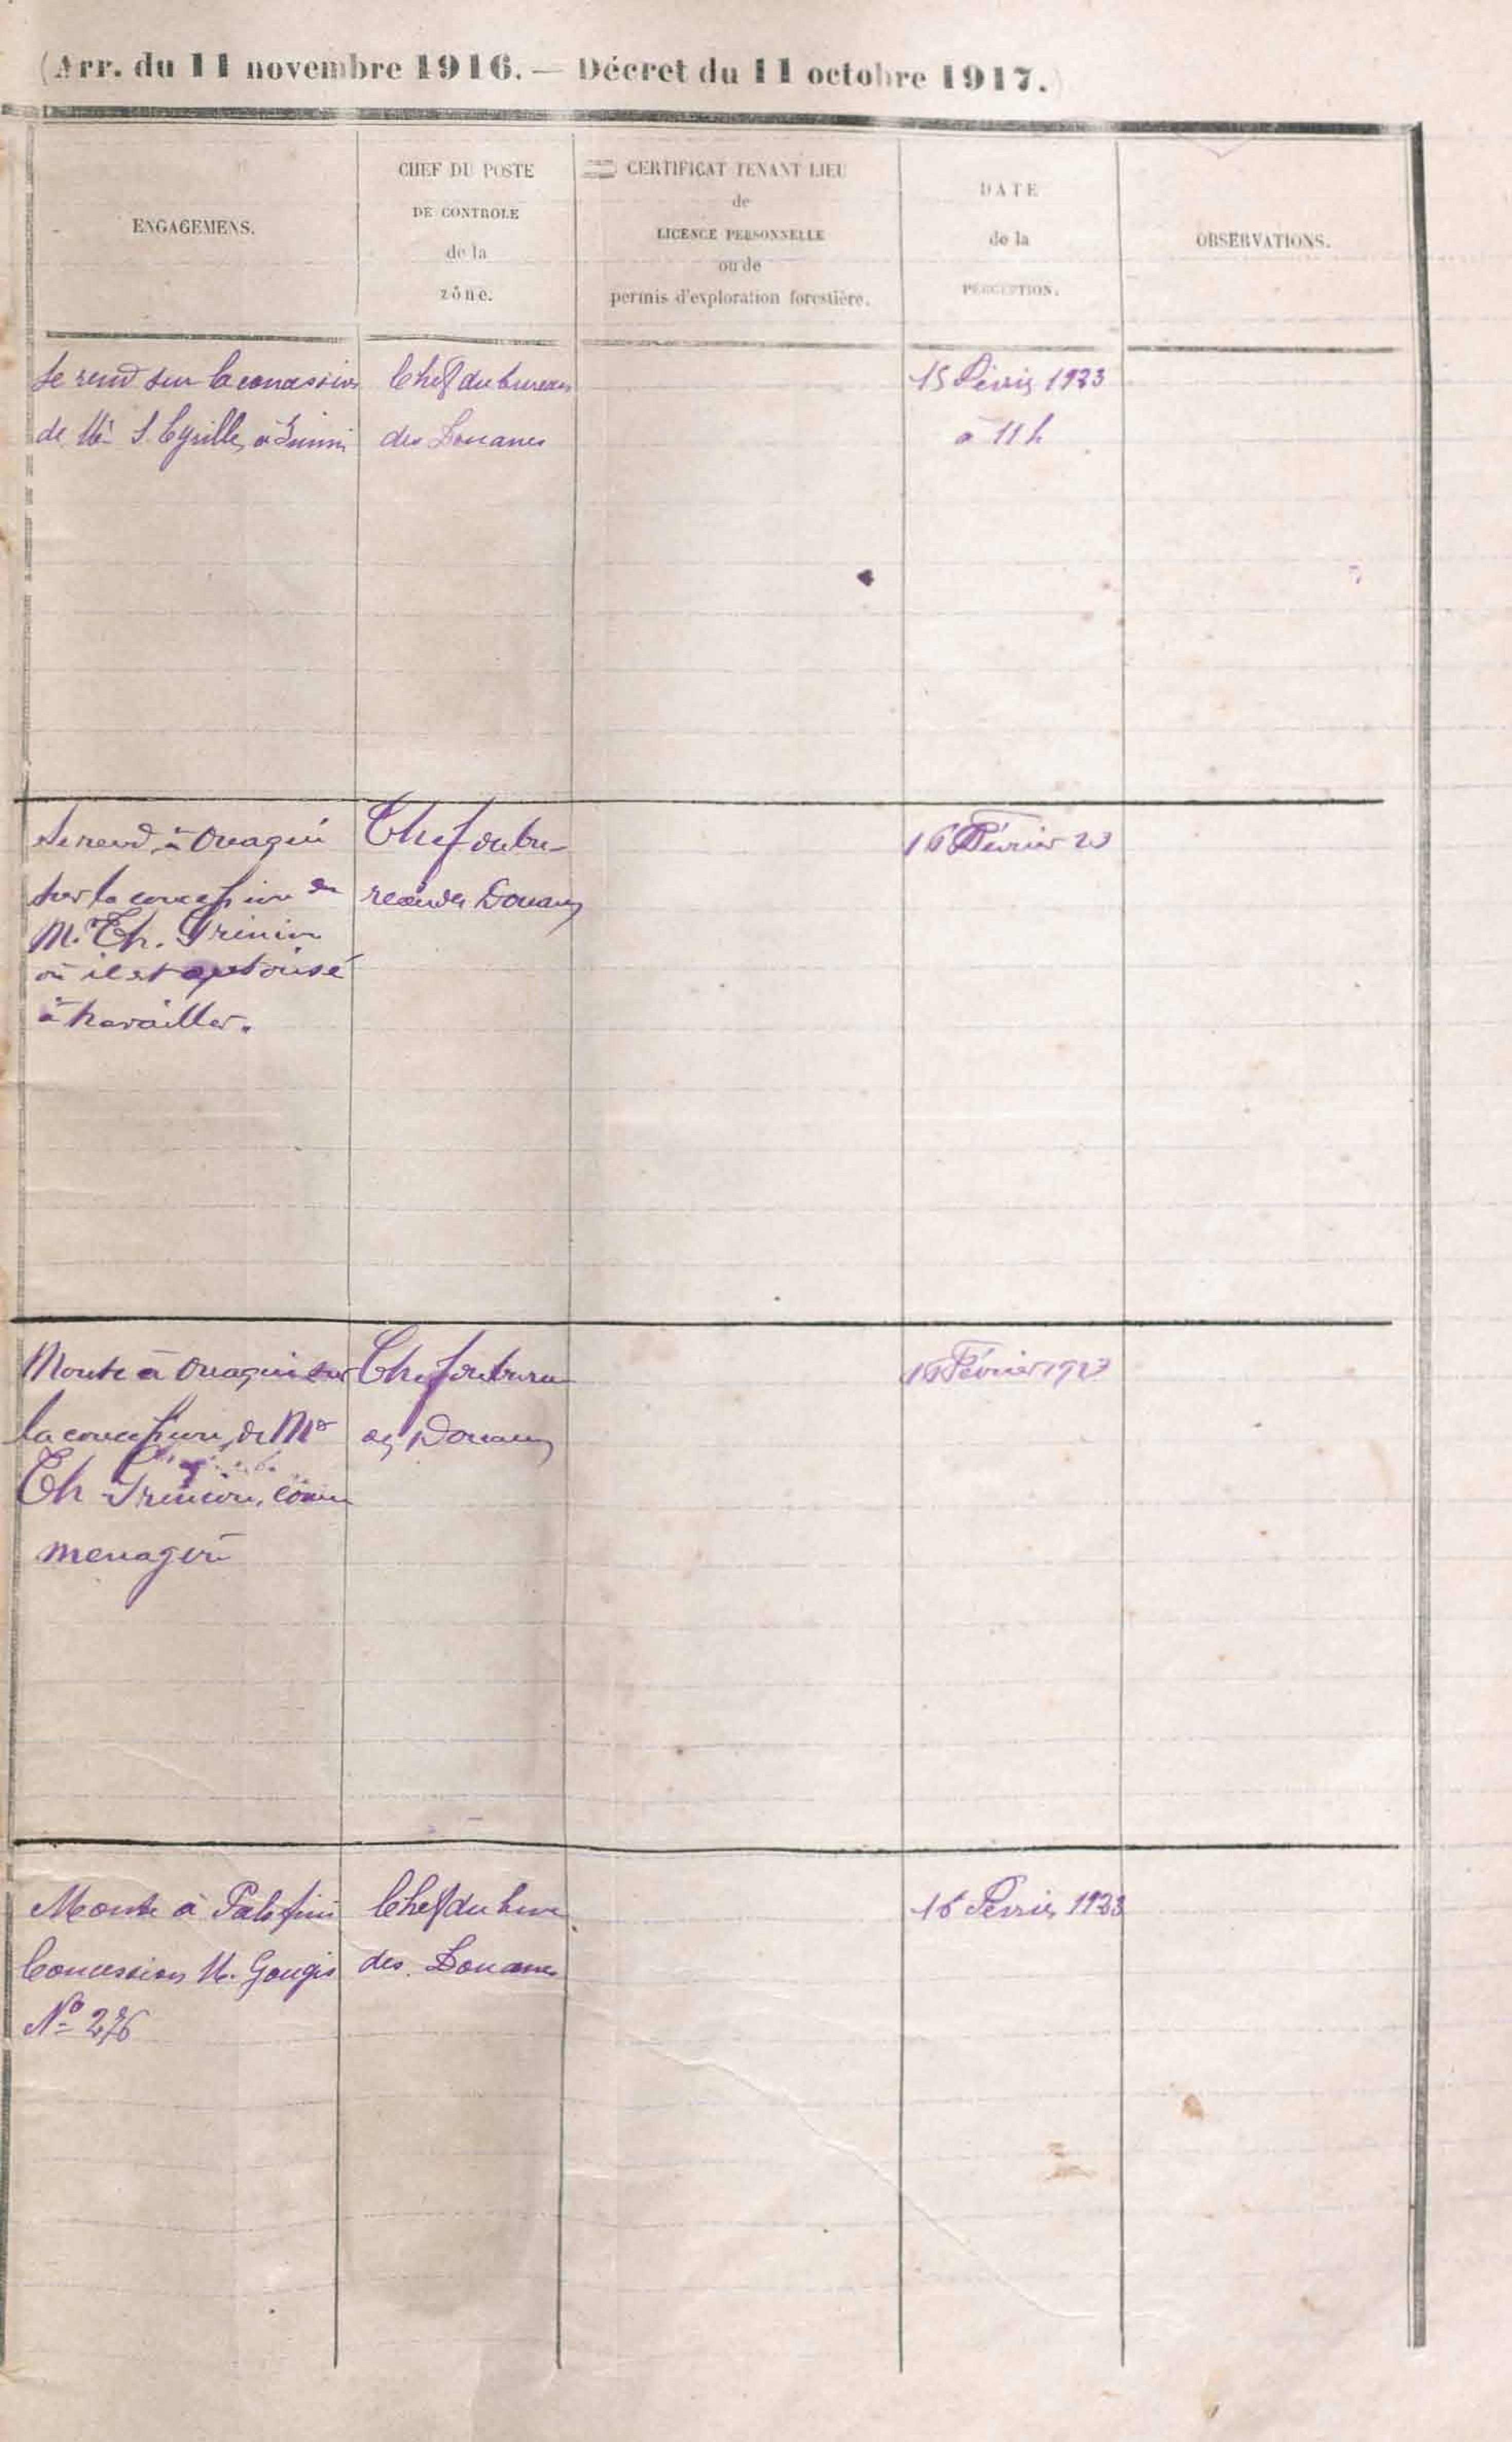 (Arr. du 11 novembre 1916. — Décret du 11 octobre 1917.)
ENGAGEMENS.
CHEF DU POSTE
DE CONTROLE
de la
zône.
CERTIFICAT TENANT LIEU
de
LICENCE PERSONNELLE
ou de
permis d'exploration forestière.
DATE
de la
PERCEPTION.
OBSERVATIONS.
Se rend sur la concession
de Mr S. Cyrille, à
Chef du bureau
des Douanes
15 Février 1923
à 11 h
Se rend à Ouaqui
sur la concession de
M. Th.
où il est autorisé
à travailler.
Chef du bu-
reau des Douanes
16 Février 23
Monte à Ouaqui sur
la concession de Mr
Th
menagère
Chef du bureau
des Douanes
16 Février 1923
Monte à
Concession M. Gougis
No 276
Chef du bureau
des Douanes
16 Février 1923